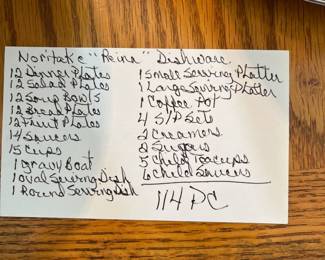 Noritake "Reina" Dishware
12 Dinner Plates
12 Salad Plates
12 Soup Bowls
12 Bread Plates
12 Fruit Plates
14 Saucers
15 Cups
1 Gravy Boat
1 Oval Serving Dish
1 Round Serving Dish
1 Small Serving Platter
1 Large Serving Platter
1 Coffee Pot
4 S/P Sets
2 Creamers
2 Sugars
5 Child Teacups
6 Child Saucers
114 PC